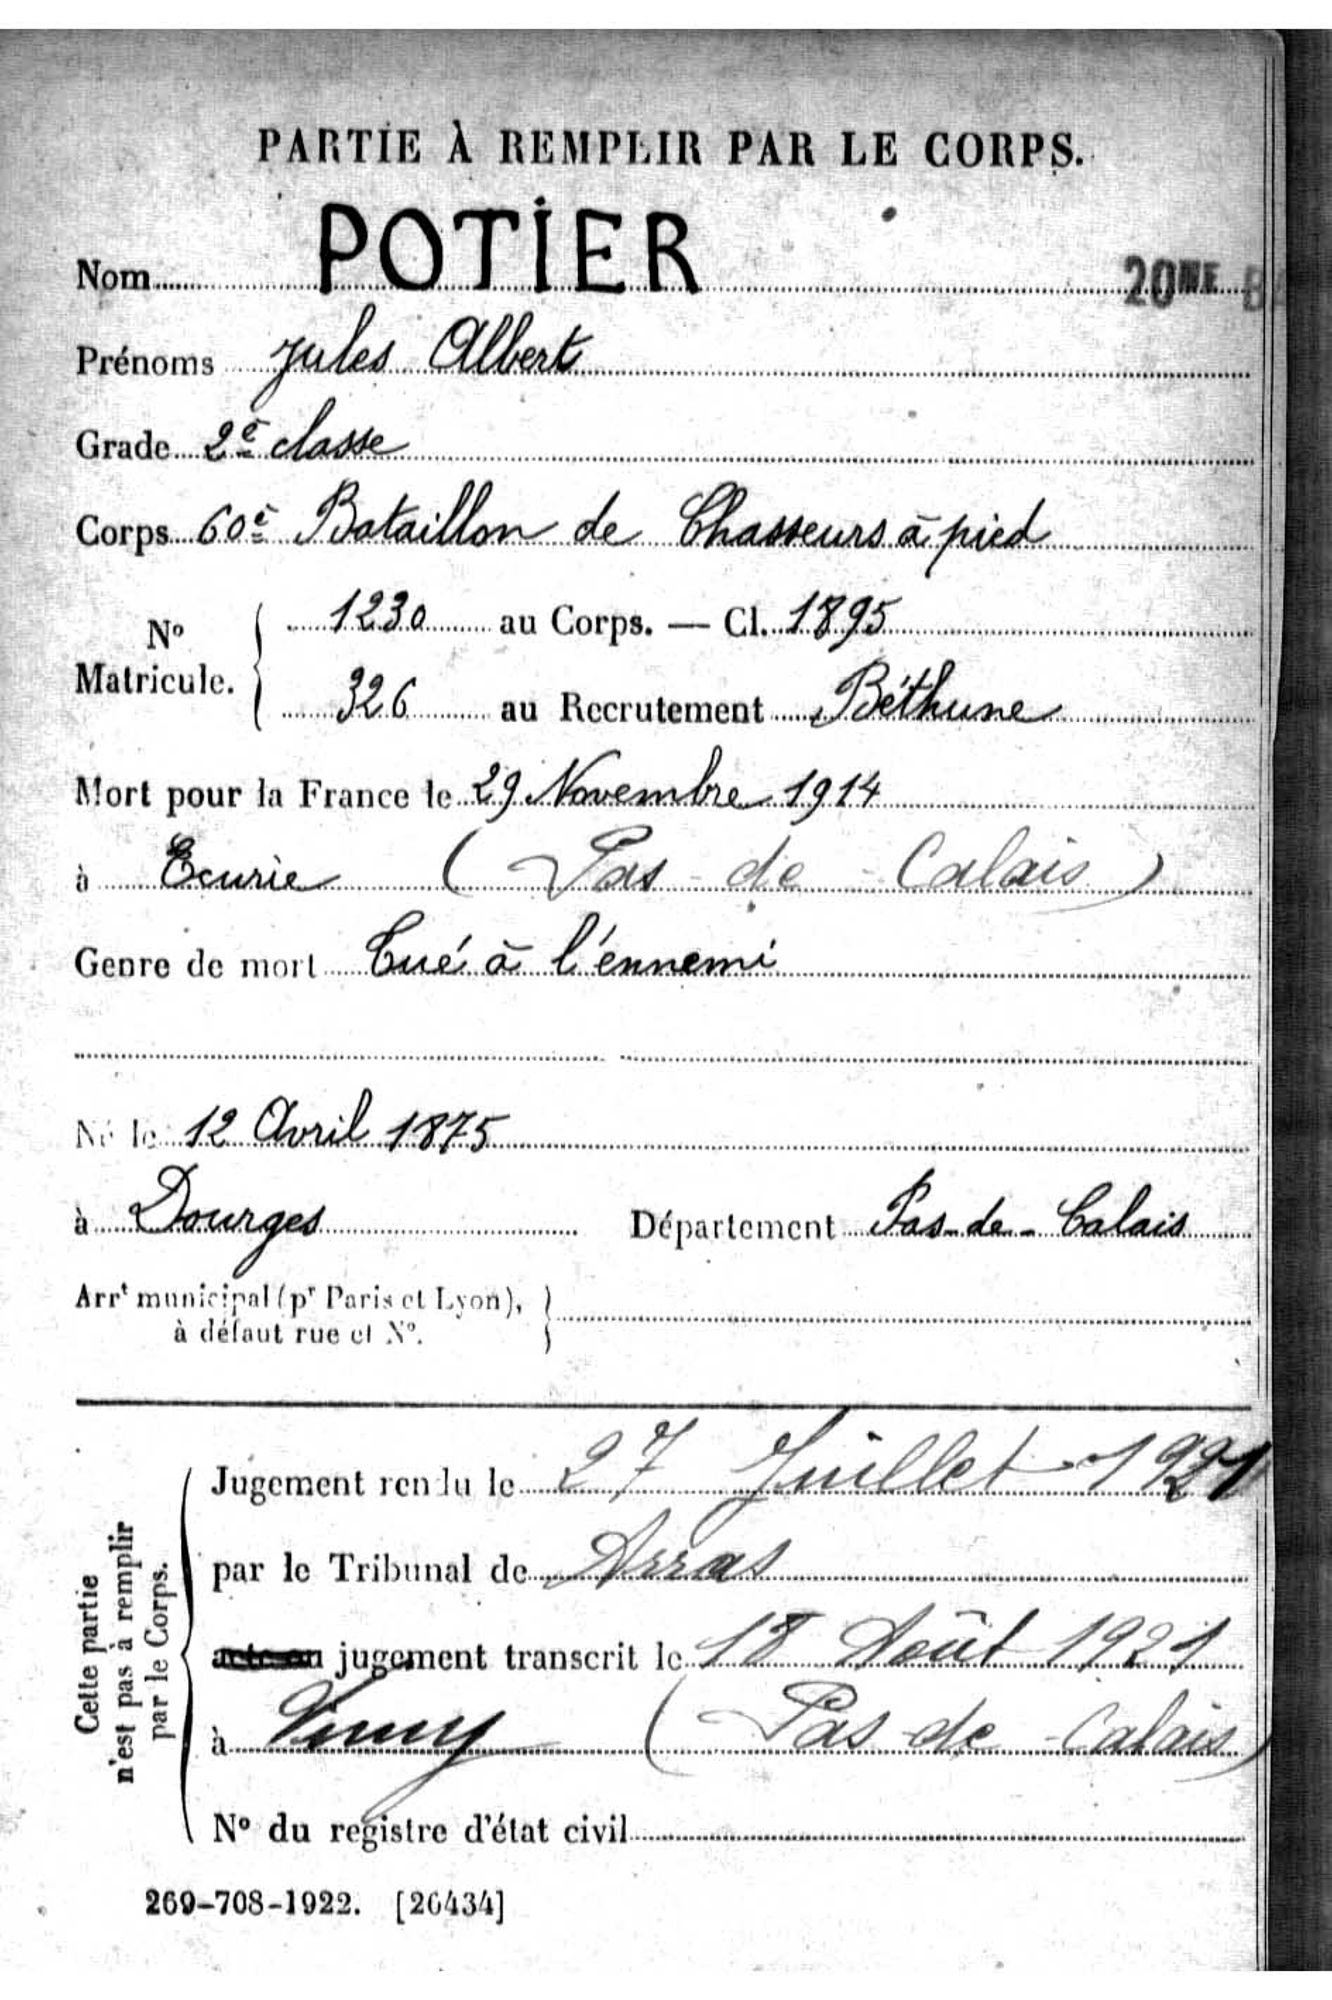 PARTIE À REMPLIR PAR LE CORPS.
Nom POTIER
20ME
Prénoms Jules Albert
Grade 2e classe
Corps 60e Bataillon de Chasseurs à pied
No Matricule. { 1230 au Corps. — Cl. 1895
326 au Recrutement Béthune
Mort pour la France le 29 Novembre 1914
à Ecurie ( Pas-de-Calais )
Genre de mort Tué à l'ennemi
Né le 12 Avril 1875
à Dourges Département Pas-de-Calais
Arrt municipal (pr Paris et Lyon), }
à défaut rue et No.
Cette partie
n'est pas à remplir
par le Corps.
Jugement rendu le 27 Juillet 1921
par le Tribunal de Arras
acte ou jugement transcrit le 18 Août 1921
à Vimy ( Pas-de-Calais )
No du registre d'état civil
269-708-1922. [26434]